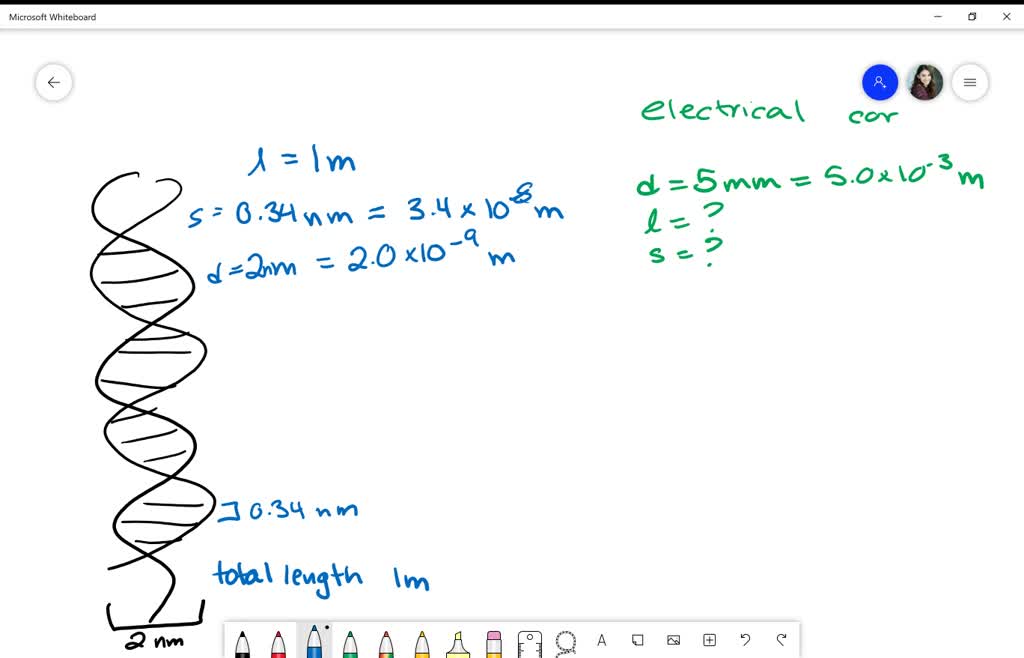 Microsoft Whiteboard
electrical car
l = 1m
s = 0.34 nm = 3.4 x 10⁻⁸ m
d = 2nm = 2.0 x 10⁻⁹ m
d = 5 mm = 5.0 x 10⁻³ m
l = ?
s = ?
0.34 nm
total length 1m
2 nm
A